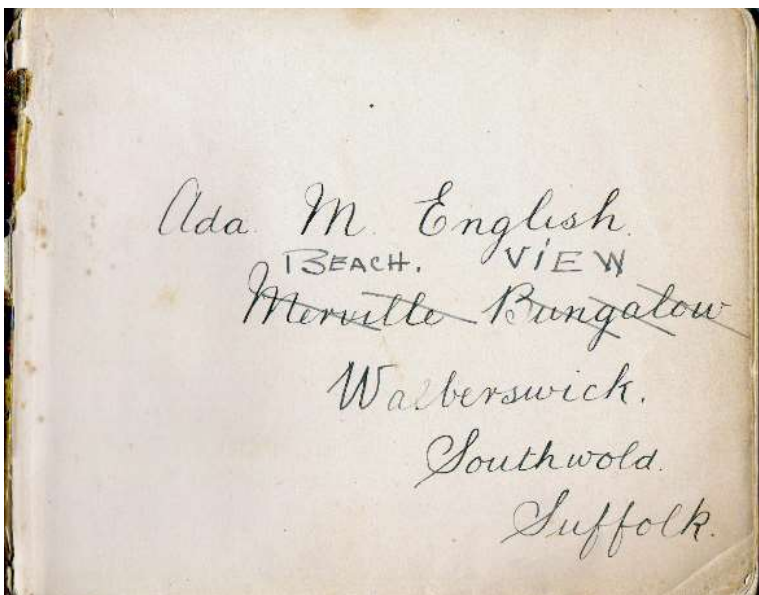 Ada. M. English.
BEACH. VIEW
Merville Bungalow
Walberswick.
Southwold.
Suffolk.